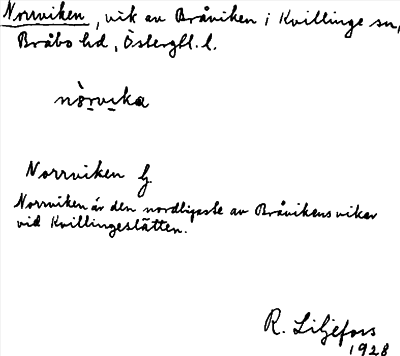 Norrviken, vik av Bråviken i Kvillinge sn,
Bråbo hd, Östergtl. l.
nò̱rvi̱ka
Norrviken
Norrviken är den nordligaste av Bråvikens vikar
vid Kvillingeslätten.
R. Liljefors
1928